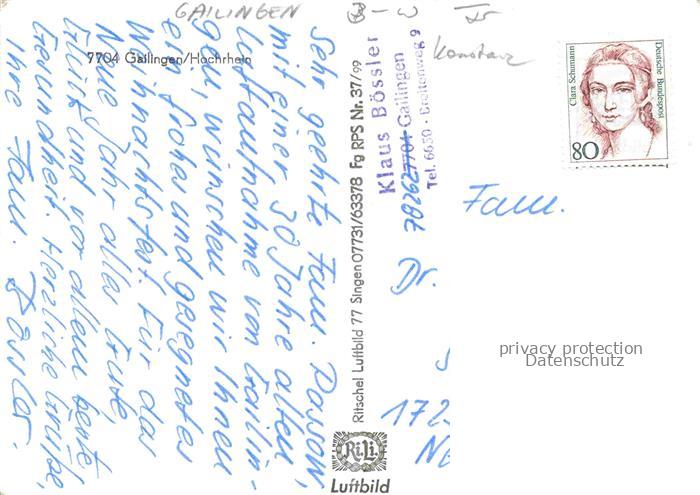 GAILINGEN
B-W
Konstanz
7704 Gailingen/Hochrhein
Sehr geehrte Fam. Dassow,
mit einer 30 Jahre alten
Luftaufnahme von Gailin-
gen, wünschen wir Ihnen
ein frohes und gesegnetes
Weihnachtsfest. Für das
Neue Jahr alles Gute
Glück und vor allem beste
Gesundheit. Herzliche Grüße,
Ihre Fam. Bössler.
Ritschel Luftbild 77 Singen 07731/63378 Fg RPS Nr. 37/99
Klaus Bössler
78262 7701 Gailingen
Tel. 6650 · Breitenweg 9
Ri.Li.
Luftbild
Clara Schumann
Deutsche Bundespost
80
Fam.
Dr.
172
privacy protection
Datenschutz